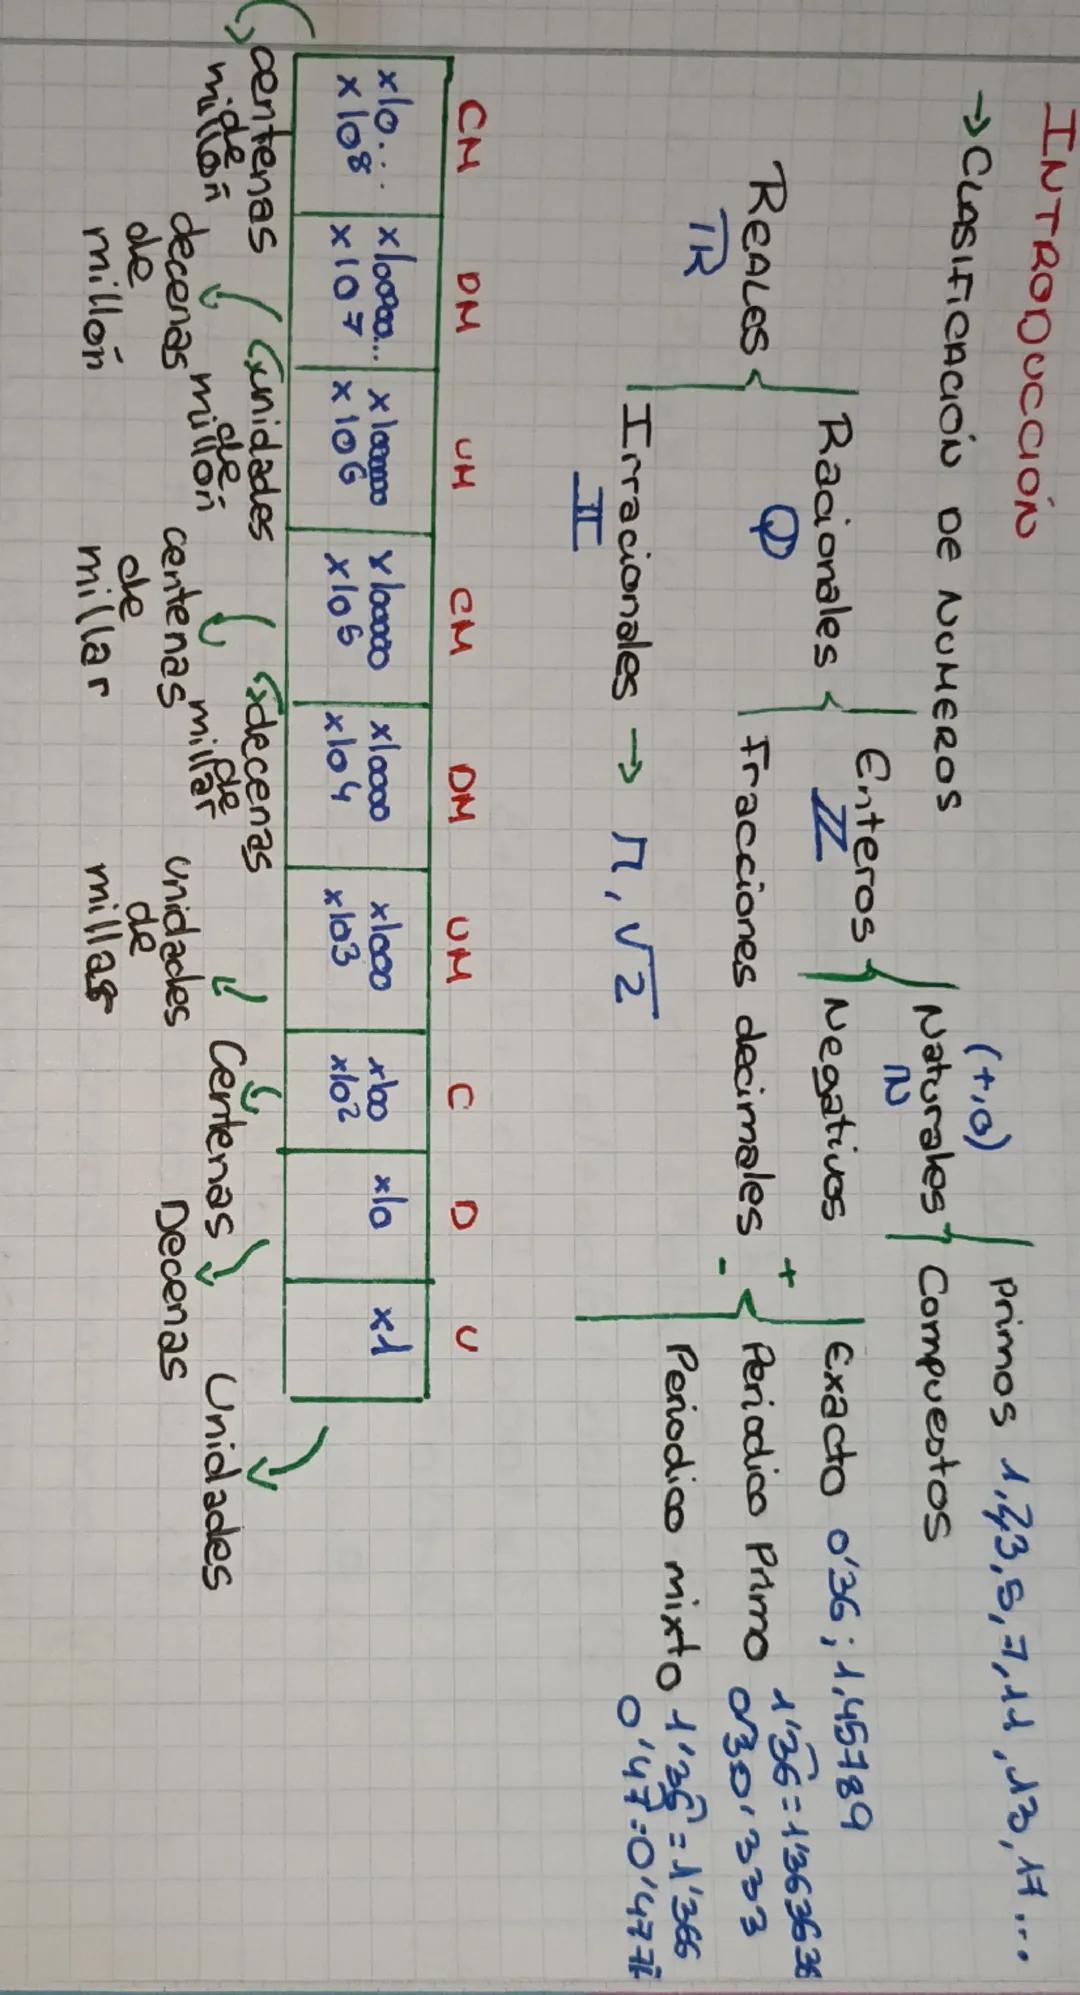 INTRODUCCIÓN
→ CLASIFICACIÓN DE NUMEROS
(+,0)
Primos 1,2,3,5,7,11,13,17...
Naturales
N
Compuestos
Enteros
Z
Negativos
Racionales
Q
Fracciones decimales
+
-
Exacto 0'36; 1,45789
REALES
R
Periodico Primo 1'36=1'363636
0'3 0,333
Periodico mixto 1'36=1'366
0'47=0'477
Irracionales → π, √2
II
CM DM UM CM DM UM C D U
x10... x100000... x1000000 x100000 x10000 x1000 x100 x10 x1
x108 x107 x106 x105 x104 x103 x10²
centenas de millón
decenas de millón
unidades de millón
centenas de millar
decenas de millar
unidades de millar
Centenas
Decenas
Unidades